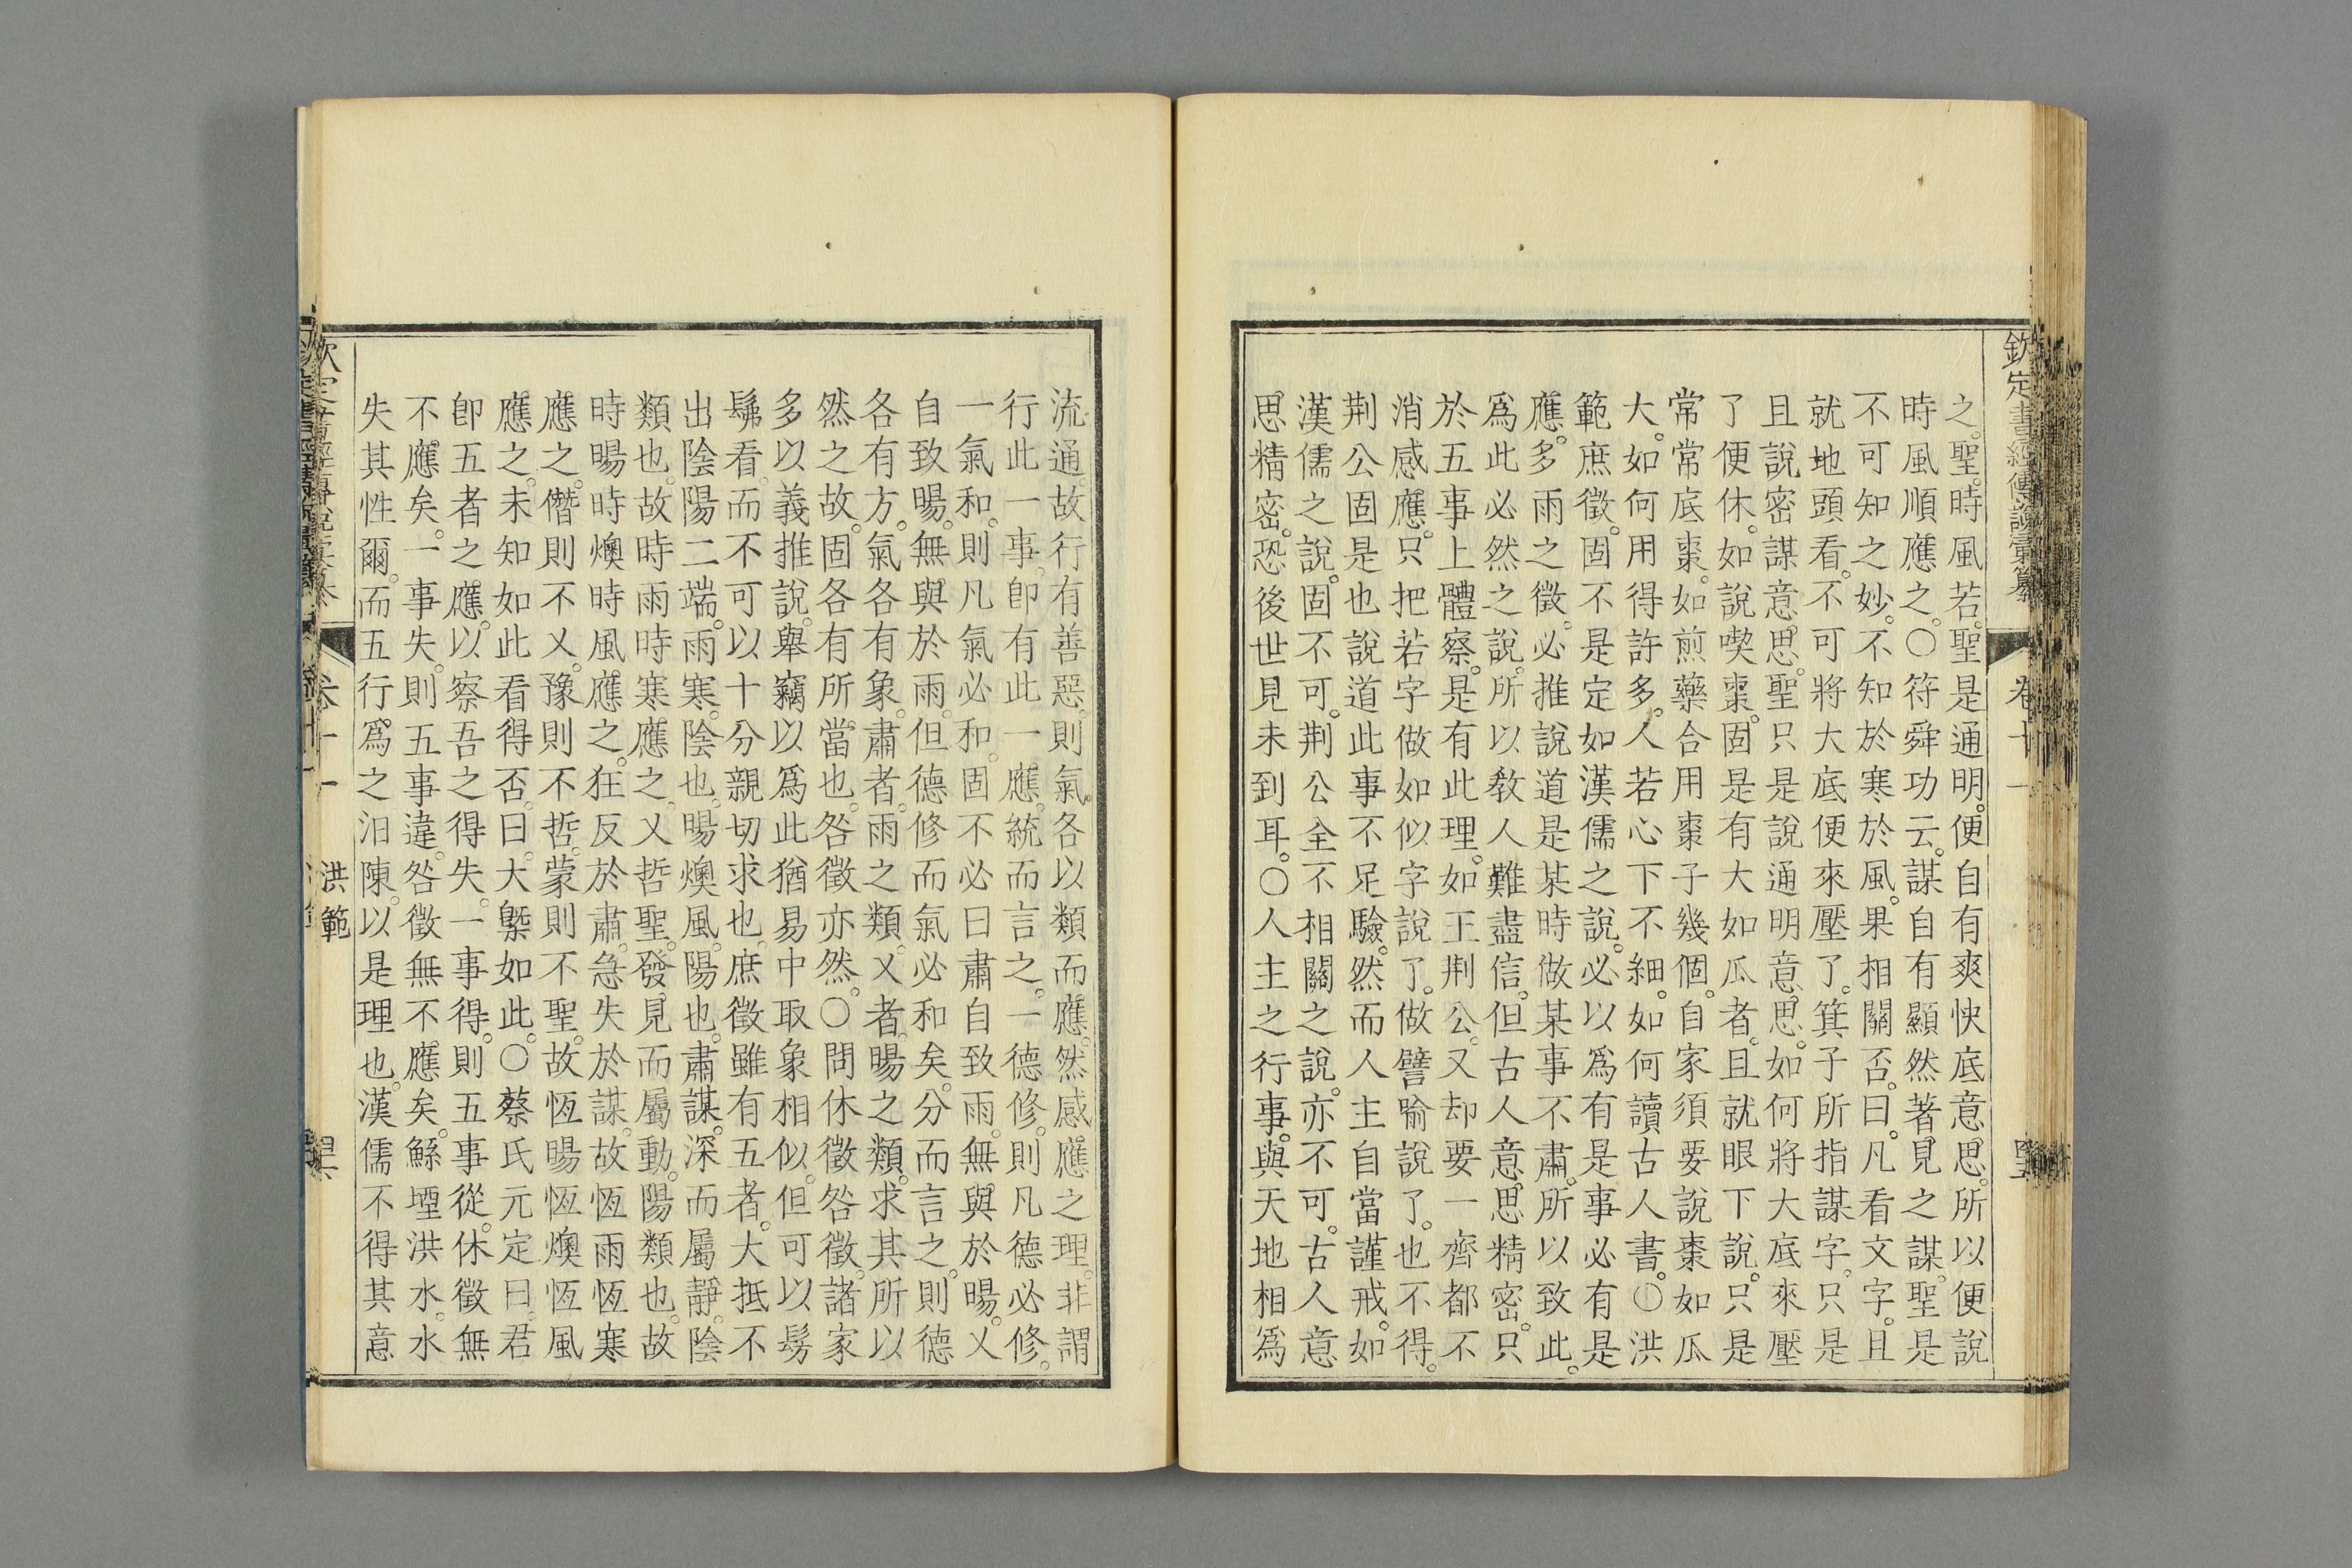 欽定書經傳說彙纂 卷十一
之聖時風若聖是通明便自有爽快底意思所以便說
時風順應之〇符舜功云謀自有顯然著見之謀聖是
不可知之妙不知於寒於風果相關否曰凡看文字且
就地頭看不可將大底便來壓了箕子所指謀字只是
且說密謀意思聖只是說通明意思如何將大底來壓
了便休如說喫棗固是有大如瓜者且就眼下說只是
常常底棗如煎藥合用棗子幾個自家須要說棗如瓜
大如何用得許多人若心下不細如何讀古人書〇洪
範庶徵固不是定如漢儒之說必以爲有是事必有是
應多雨之徵必推說道是某時做某事不肅所以致此
爲此必然之說所以敎人難盡信但古人意思精密只
於五事上體察是有此理如王荆公又却要一齊都不
消感應只把若字做如似字說了做譬喻說了也不得
荆公固是也說道此事不足驗然而人主自當謹戒如
漢儒之說固不可荆公全不相關之說亦不可古人意
思精密恐後世見未到耳〇人主之行事與天地相爲
流通故行有善惡則氣各以類而應然感應之理非謂
行此一事卽有此一應統而言之一德修則凡德必修
一氣和則凡氣必和固不必曰肅自致雨無與於暘乂
自致暘無與於雨但德修而氣必和矣分而言之則德
各有方氣各有象肅者雨之類乂者暘之類求其所以
然之故固各有所當也咎徵亦然〇問休徵咎徵諸家
多以義推說舉竊以爲此猶易中取象相似但可以髣
髴看而不可以十分親切求也庶徵雖有五者大抵不
出陰陽二端雨寒陰也暘燠風陽也肅謀深而屬靜陰
類也故時雨時寒應之乂哲聖發見而屬動陽類也故
時暘時燠時風應之狂反於肅急失於謀故恆雨恆寒
應之僭則不乂豫則不哲蒙則不聖故恆暘恆燠恆風
應之未知如此看得否曰大槩如此〇蔡氏元定曰君
卽五者之應以察吾之得失一事得則五事從休徵無
不應矣一事失則五事違咎徵無不應矣鯀堙洪水水
失其性爾而五行爲之汨陳以是理也漢儒不得其意
卷十一 洪範